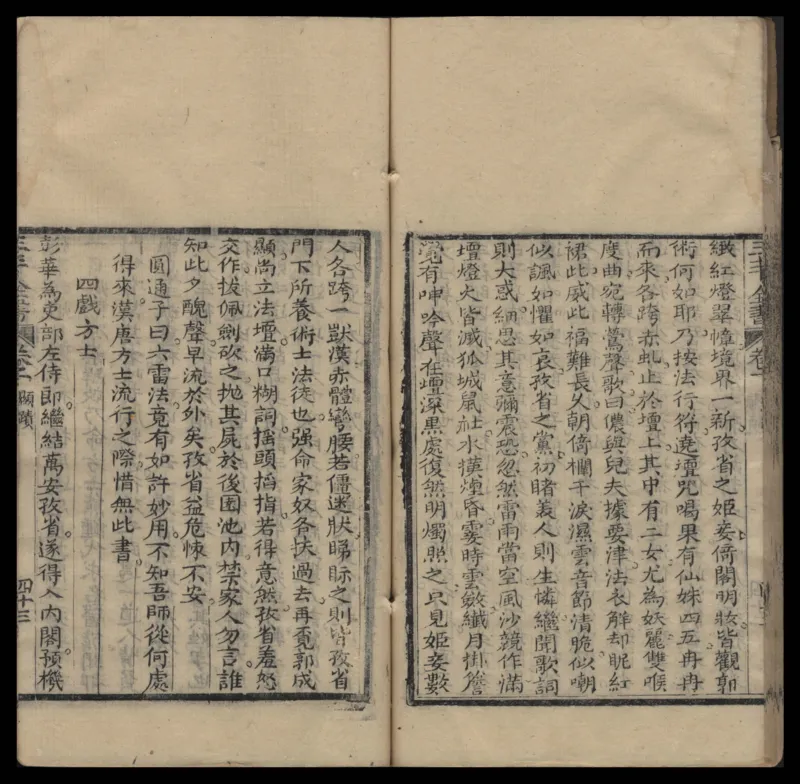 緻紅燈翠幛境界一新孜省之姬妾倚閣明妝皆觀郭
術何如耶乃按法行符遶壇咒喝果有仙姝四五冉冉
而來各跨赤虬止於壇上其中有二女尤為妖麗雙喉
度曲宛轉鶯聲歌曰儂與兒夫據要津法衣解却昵紅
裙此威此福難長久朝倚欄干淚濕雲音節清脆似嘲
似諷如懼如哀孜省之黨初睹美人則生憐繼聞歌詞
則大惑細思其意彌震恐忽然雷雨當空風沙競作滿
壇燈火皆滅狐城鼠社水漠煙昏霎時雲斂纖月掛簷
覺有呻吟聲在壇深黑處復然明燭照之只見姬妾數
人各跨一獃漢赤體彎腰若僊迷狀睇眎之則皆孜省
門下所養術士法徒也强命家奴各扶過去再覔郭成
顯尚立法壇滿口糊詞搖頭搯指若得意然孜省羞怒
交作拔佩劍砍之抛其屍於後園池內禁家人勿言誰
知此夕醜聲早流於外矣孜省益危悚不安
圓通子曰六雷法竟有如許妙用不知吾師從何處
得來漢唐方士流行之際惜無此書
四戲方士
彭華為吏部左侍郎繼結萬安孜省遂得入內閣預機
卷二 顯蹟
四十三